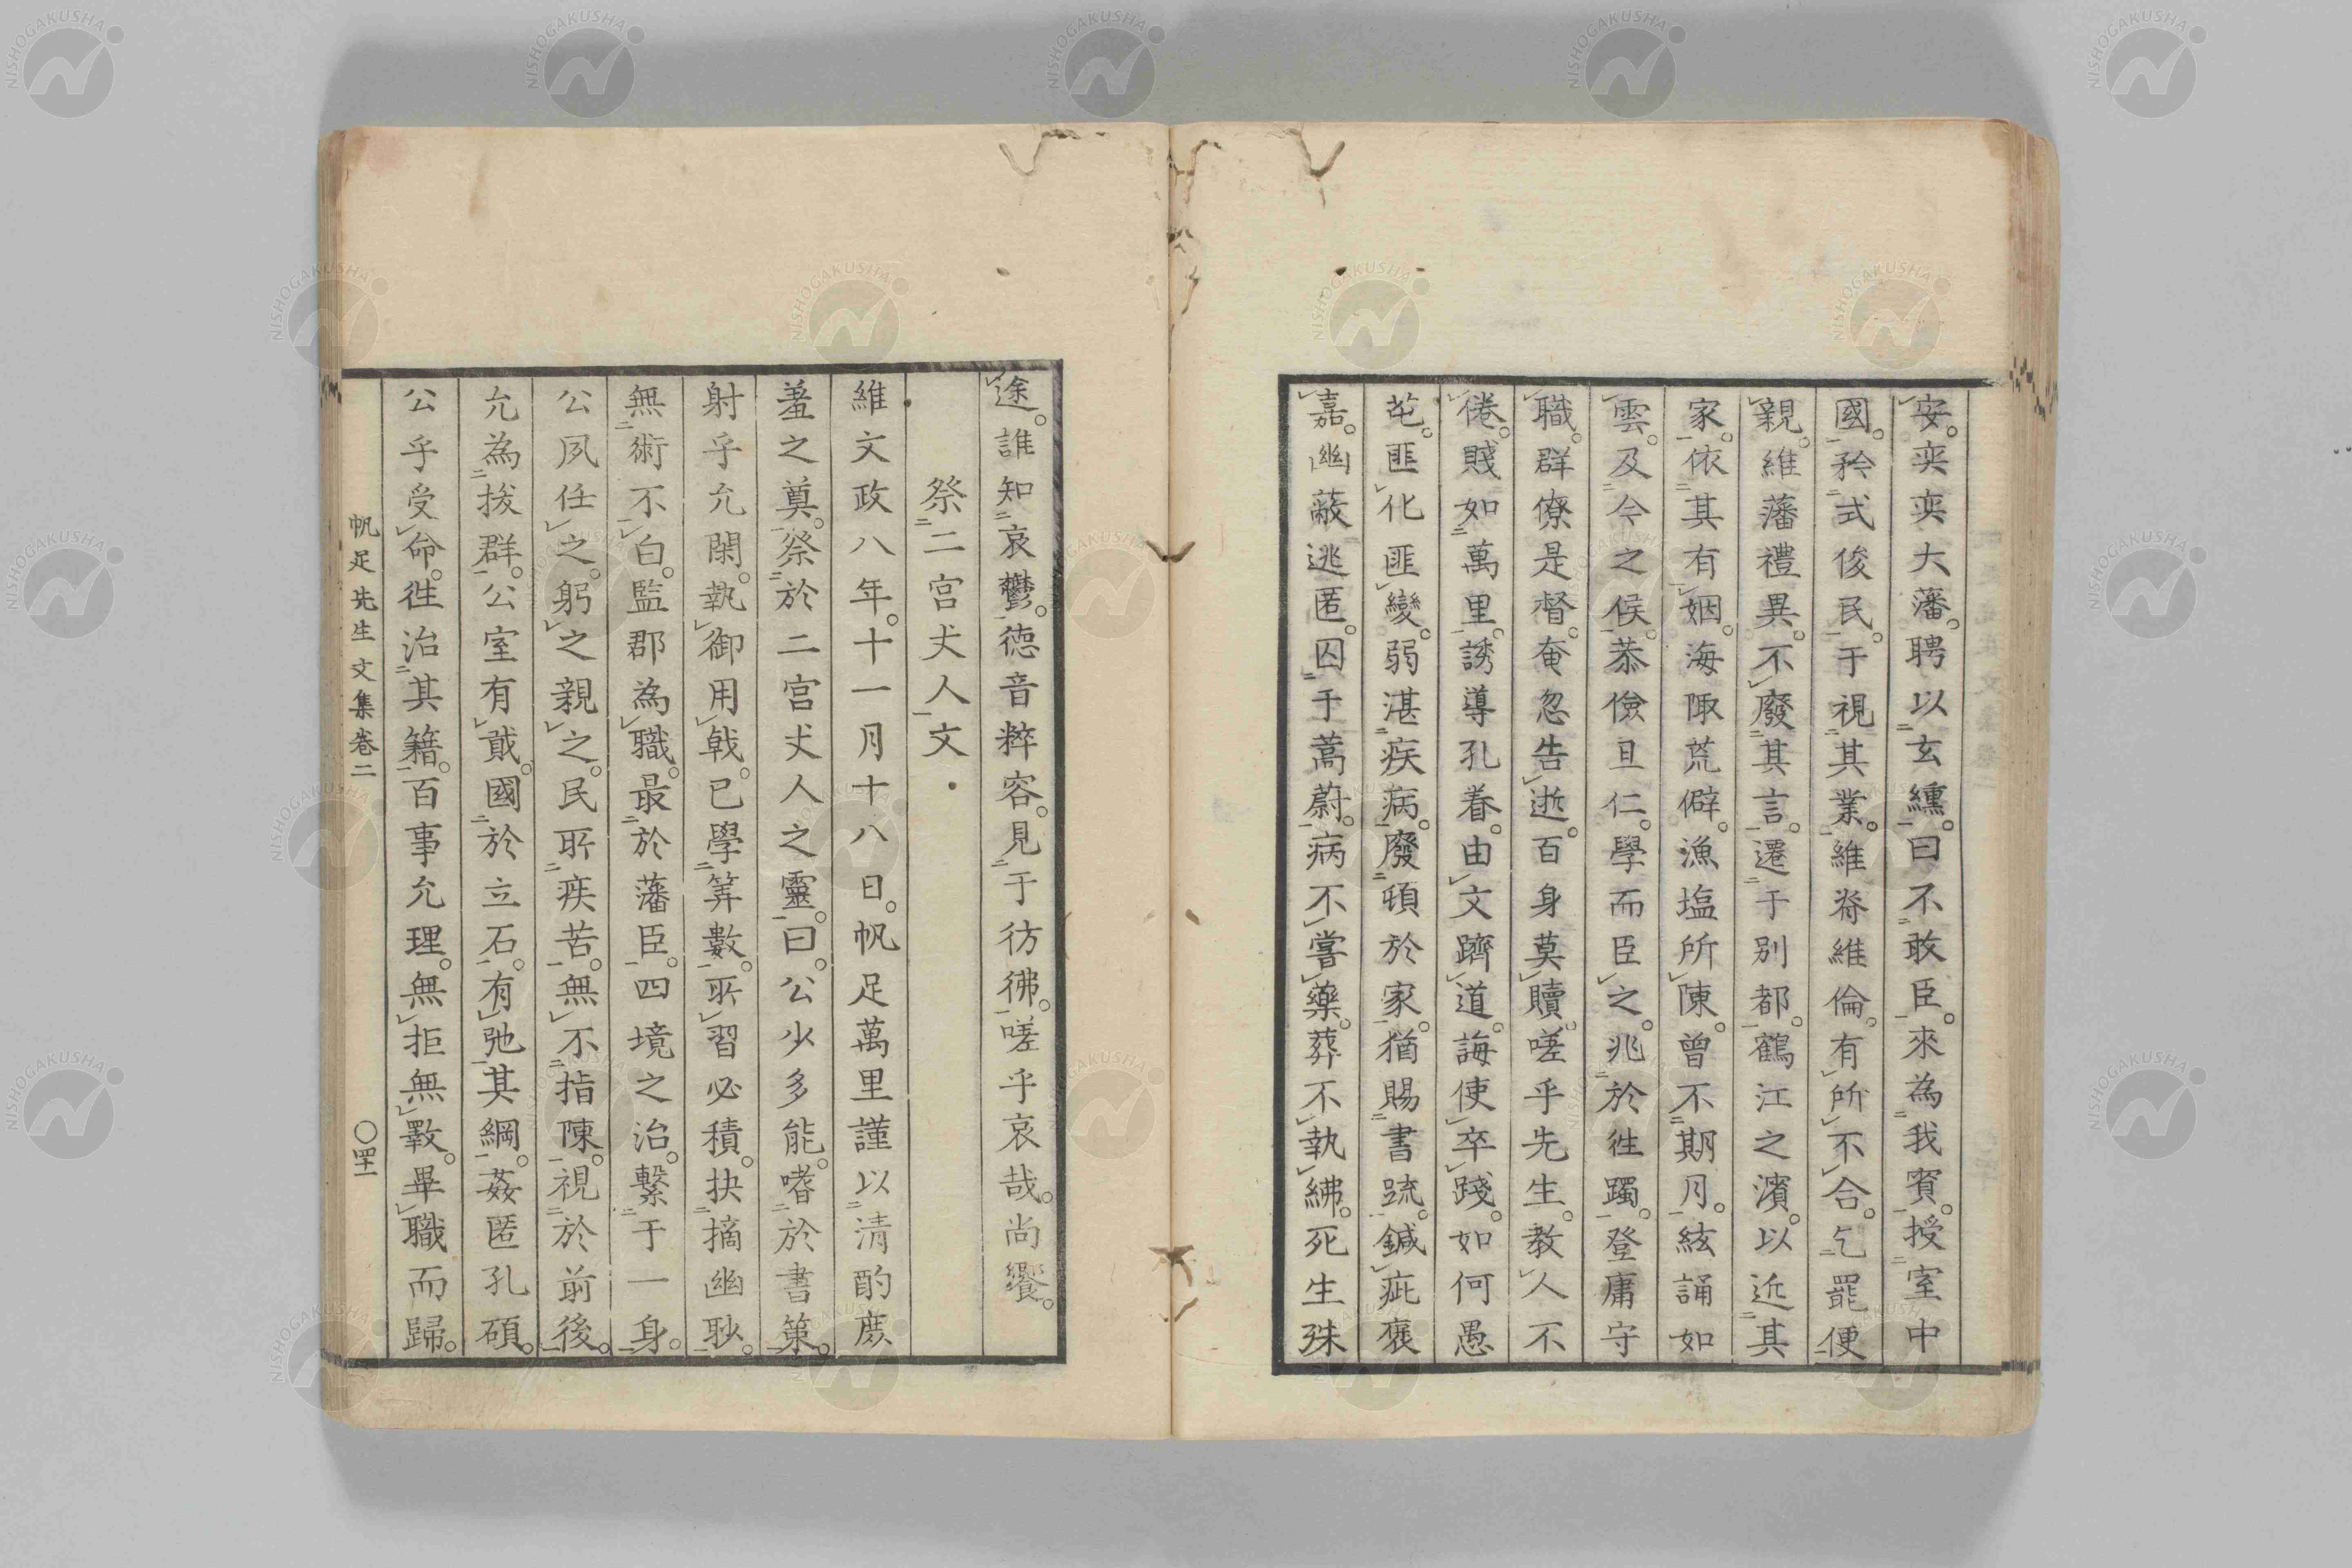 安。奕奕大藩。聘以玄纁。曰不敢臣。來為我賓。授室中
國。矜式俊民。于視其業。維脊維倫。有所不合。乞罷便
親。維藩禮異。不廢其言。遷于別都。鶴江之濱。以近其
家。依其有姻。海陬荒僻。漁塩所陳。曾不期月。絃誦如
雲。及今之候。恭儉且仁。學而臣之。兆於徃躅。登庸守
職。群僚是督。奄忽告逝。百身莫贖。嗟乎先生。教人不
倦。賤如萬里。誘導孔眷。由文躋道。誨使卒踐。如何愚
芚。匪化匪變。弱湛疾病。廢頓於家。猶賜書疏。鍼疵褒
嘉。幽蔽逃匿。囚于蒿蔚。病不嘗藥。葬不執紼。死生殊
途。誰知哀鬱。德音粹容。見于彷彿。嗟乎哀哉。尚饗。
祭二宮丈人文
維文政八年。十一月十八日。帆足萬里謹以清酌庶
羞之奠。祭於二宮丈人之靈。曰。公少多能。嗜於書策。
射乎允閑。執御用戟。已學筭數。所習必積。抉摘幽眇。
無術不白。監郡為職。最於藩臣。四境之治。繫于一身。
公夙任之。躬之親之。民所疾苦。無不指陳。視於前後。
允為拔群。公室有貮。國於立石。有弛其綱。姦匿孔碩。
公乎受命。徃治其籍。百事允理。無拒無斁。畢職而歸。
帆足先生文集卷二
〇四十一
NISHOGAKUSHA